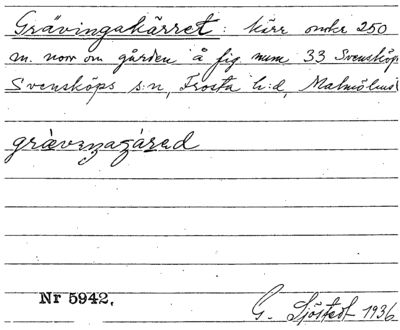 Grävingakärret: kärr omkr 250
m. norr om gården å fig num 33 Svensköp
Svensköps s:n, Frosta h:d, Malmöhus
Nr 5942.
G. Sjöstedt 1936